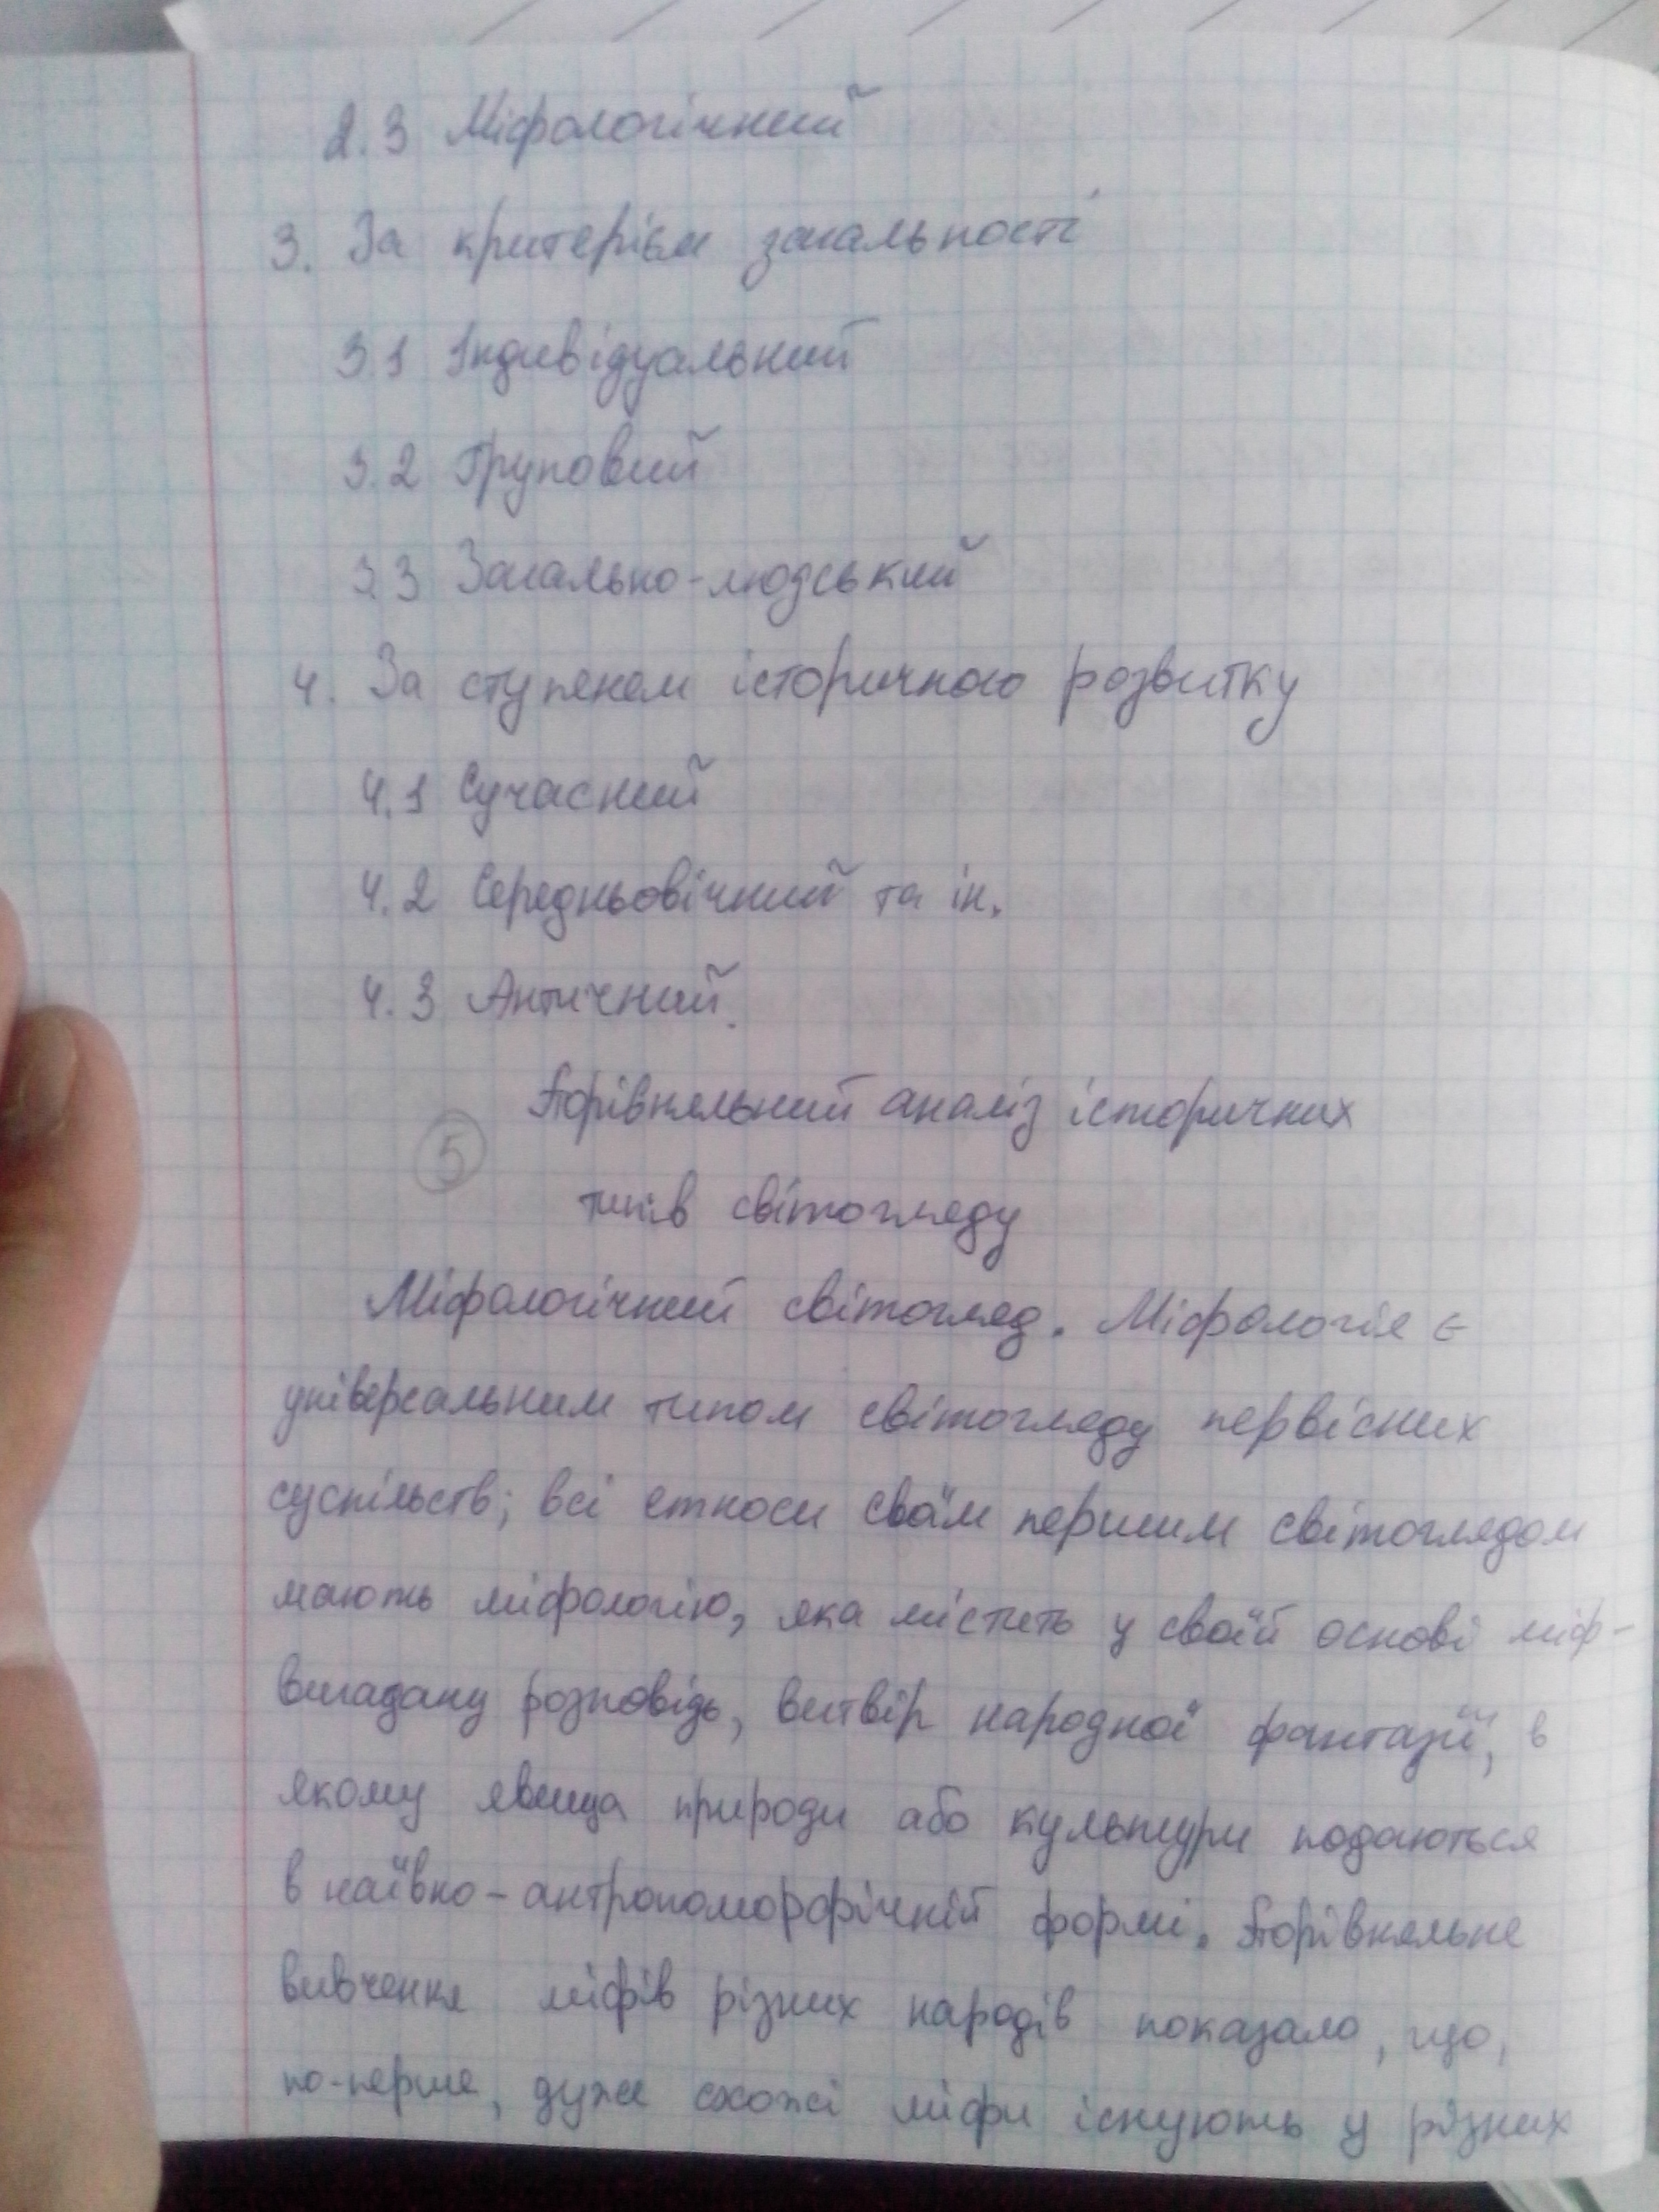 2.3 Міфологічний
3. За критерієм загальності
3.1 Індивідуальний
3.2 Груповий
3.3 Загально-людський
4. За ступенем історичного розвитку
4.1 Сучасний
4.2 Середньовічний та ін.
4.3 Античний.
Порівняльний аналіз історичних
5
типів світогляду
Міфологічний світогляд. Міфологія є
універсальним типом світогляду первісних
суспільств; всі етноси своїм першим світоглядом
мають міфологію, яка містить у своїй основі міф-
вигадану розповідь, витвір народної фантазії, в
якому явища природи або культури подаються
в наївно-антропоморфічній формі. Порівняльне
вивчення міфів різних народів показало, що,
по-перше, дуже схожі міфи існують у різних